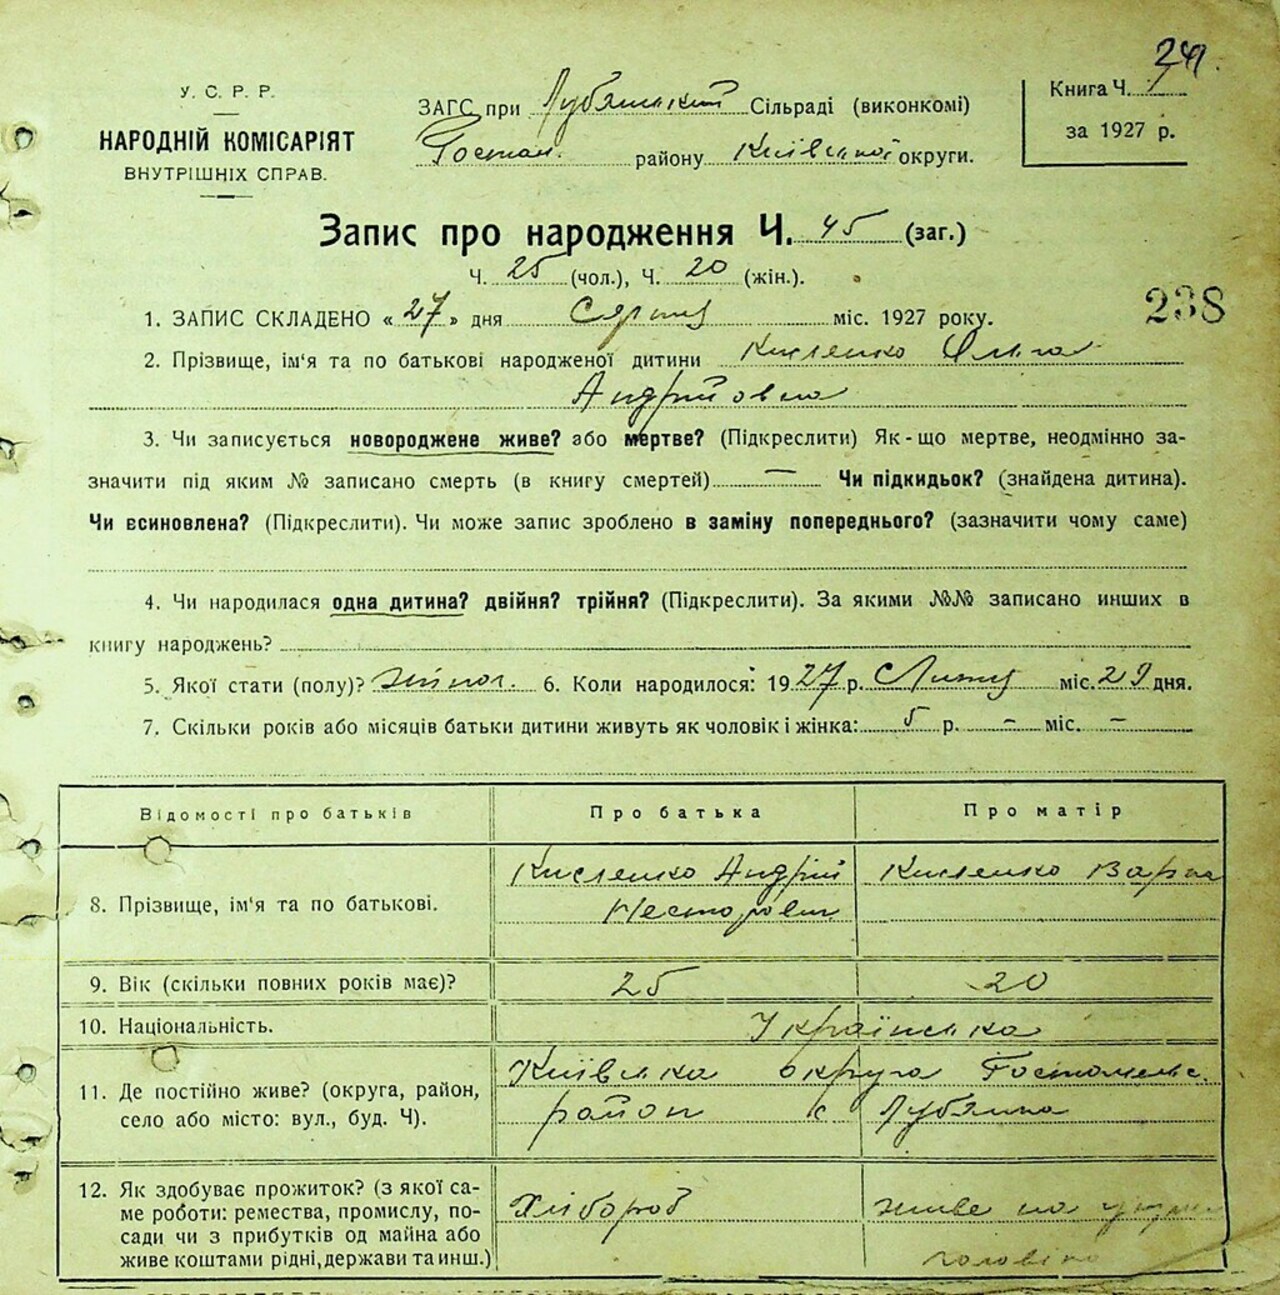 241.
У. С. Р. Р.
НАРОДНІЙ КОМІСАРІЯТ
ВНУТРІШНІХ СПРАВ.
ЗАГС при Лубянській Сільраді (виконкомі)
Гостом. району Київської округи.
Книга Ч.
за 1927 р.
Запис про народження Ч. 45 (заг.)
Ч. 25 (чол.), Ч. 20 (жін.).
238
1. ЗАПИС СКЛАДЕНО « 27 » дня Серпня міс. 1927 року.
2. Прізвище, ім'я та по батькові народженої дитини Кисленко Ольга
Андрійовна
3. Чи записується новороджене живе? або мертве? (Підкреслити) Як-що мертве, неодмінно за-
значити під яким № записано смерть (в книгу смертей) — Чи підкидьок? (знайдена дитина).
Чи всиновлена? (Підкреслити). Чи може запис зроблено в заміну попереднього? (зазначити чому саме)
4. Чи народилася одна дитина? двійня? трійня? (Підкреслити). За якими №№ записано инших в
книгу народжень?
5. Якої стати (полу)? жіноч. 6. Коли народилося: 1927 р. Липня міс. 29 дня.
7. Скільки років або місяців батьки дитини живуть як чоловік і жінка: 5 р. — міс. —
Відомості про батьків
Про батька
Про матір
8. Прізвище, ім'я та по батькові.
Кисленко Андрій
Несторович
Кисленко Варка
9. Вік (скільки повних років має)?
25
20
10. Національність.
Українська
11. Де постійно живе? (округа, район,
село або місто: вул., буд. Ч).
Київська округа Гостомельс.
район с Лубянка
12. Як здобуває прожиток? (з якої са-
ме роботи: ремества, промислу, по-
сади чи з прибутків од майна або
живе коштами рідні, держави та инш.)
Хлібороб
живе на
чоловіка